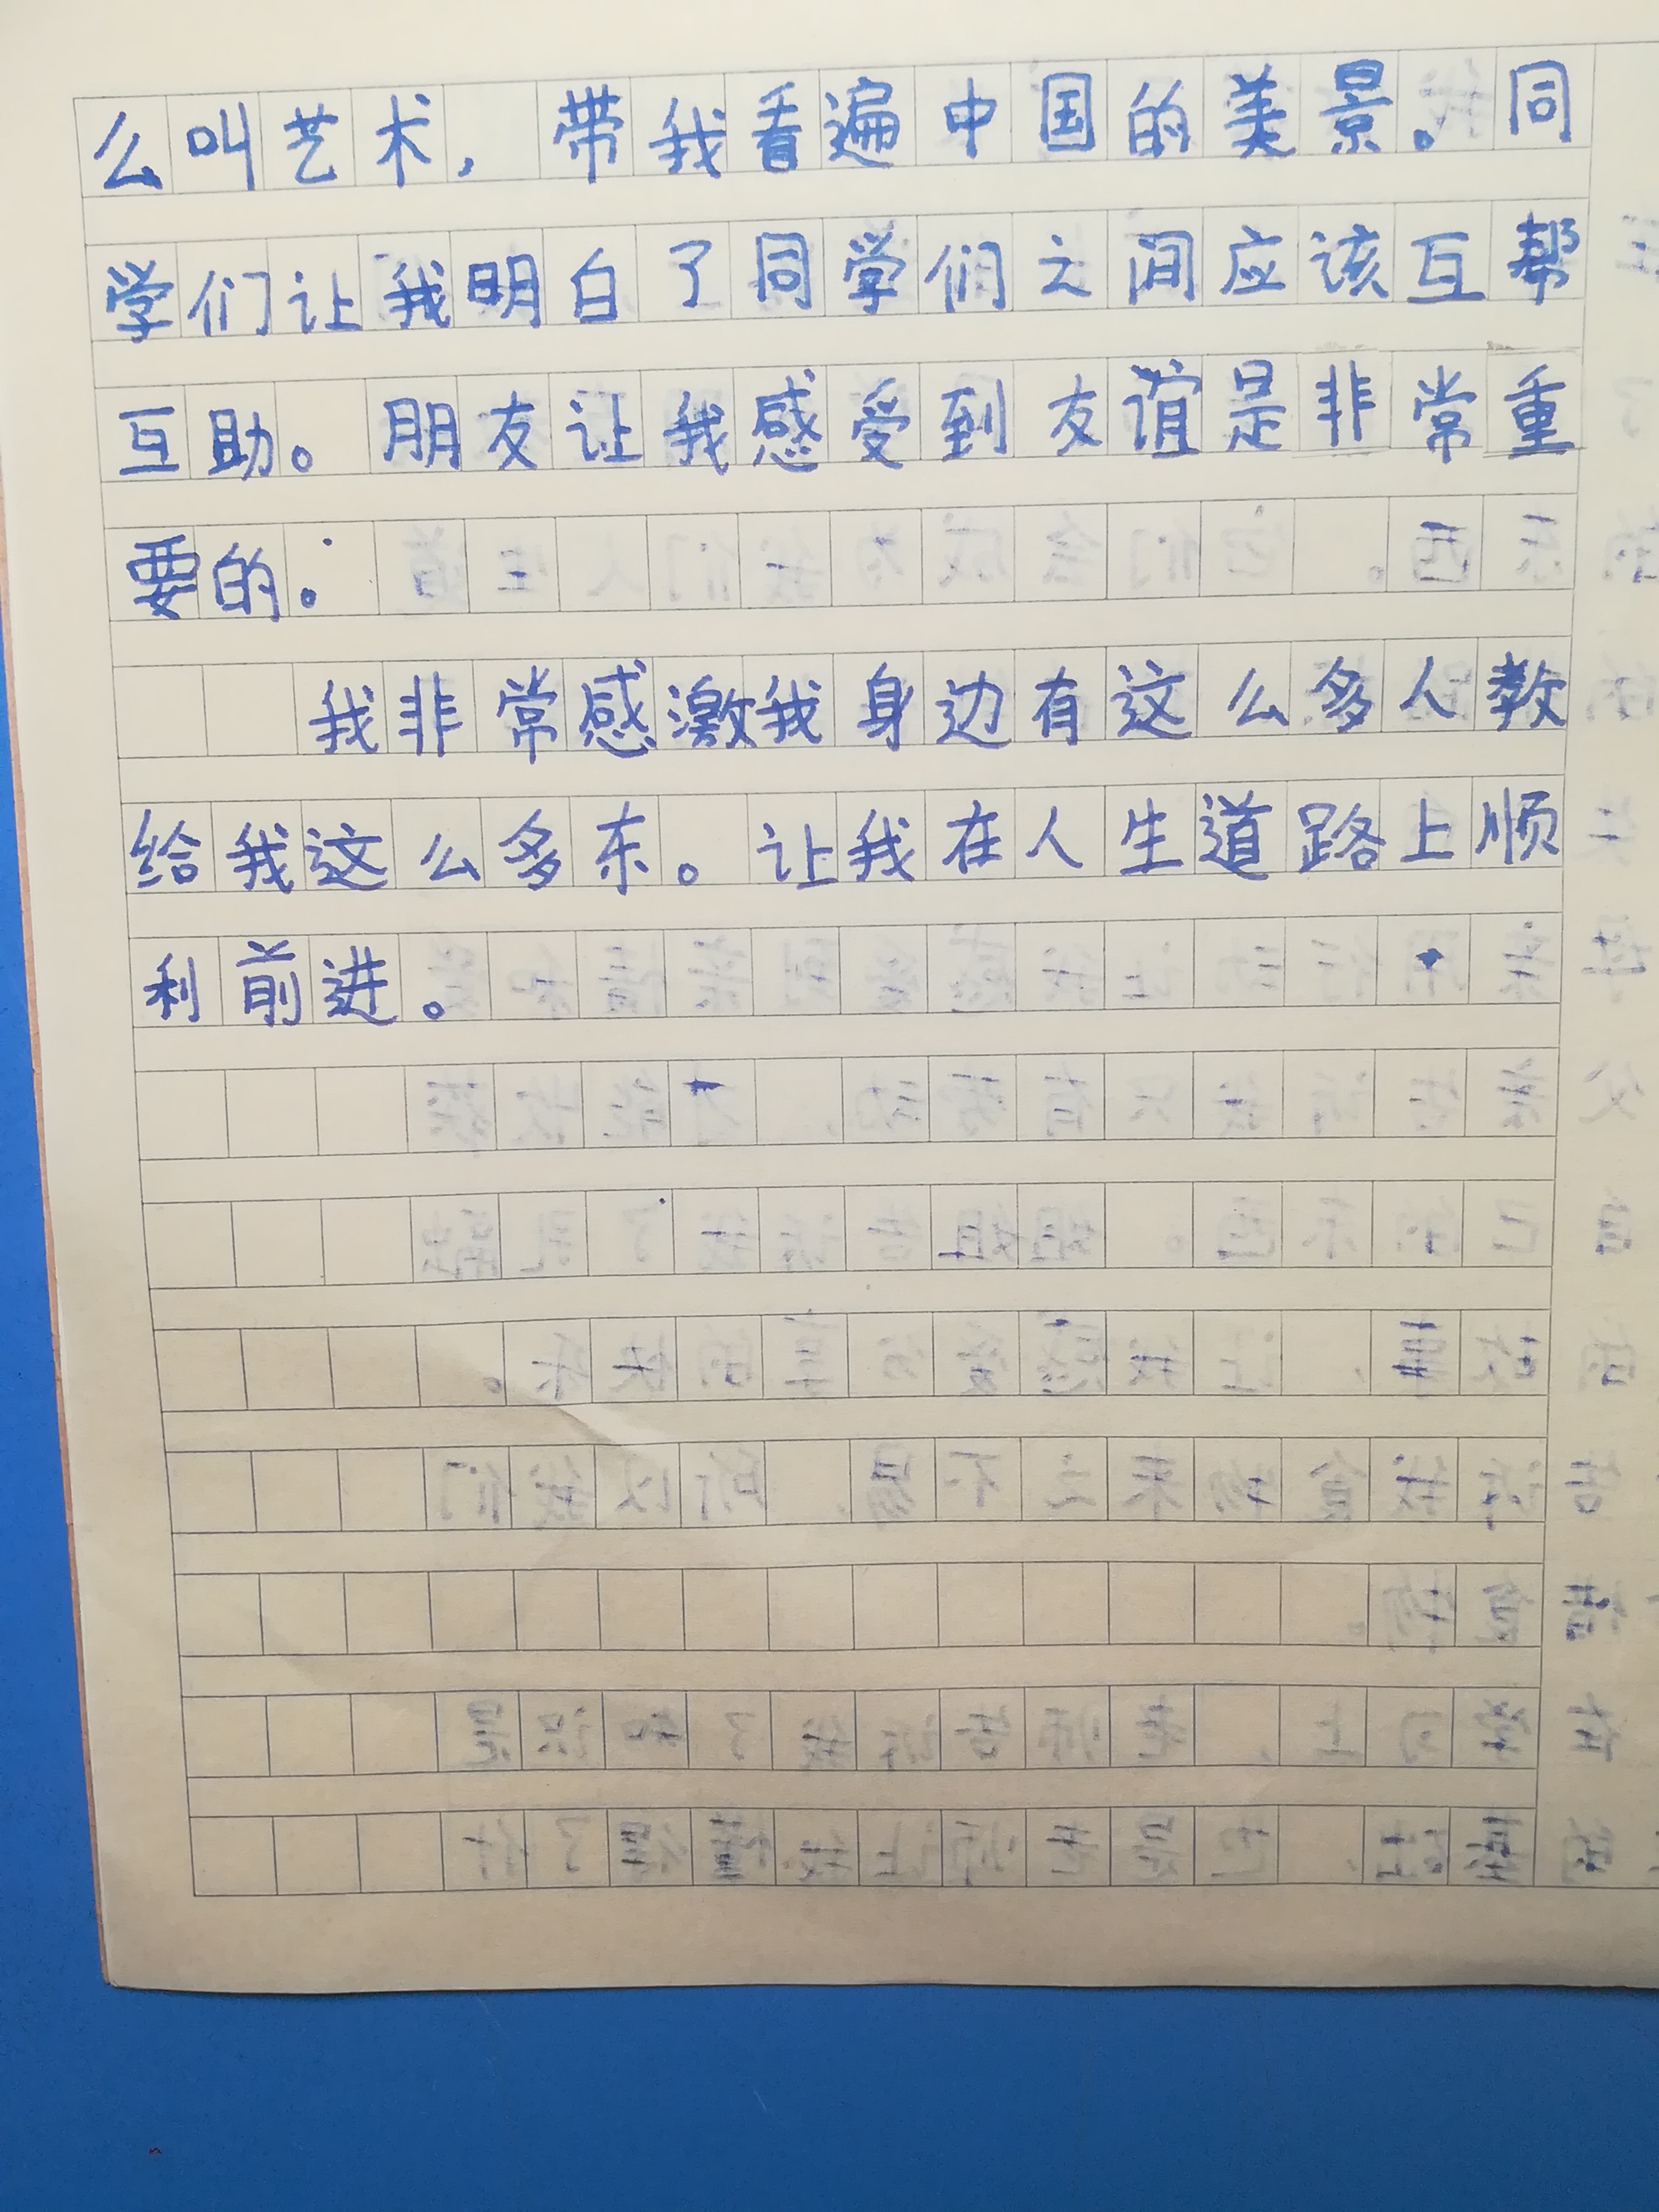 么叫艺术，带我看遍中国的美景。同
学们让我明白了同学们之间应该互帮
互助。朋友让我感受到友谊是非常重
要的。
我非常感激我身边有这么多人教
给我这么多东。让我在人生道路上顺
利前进。